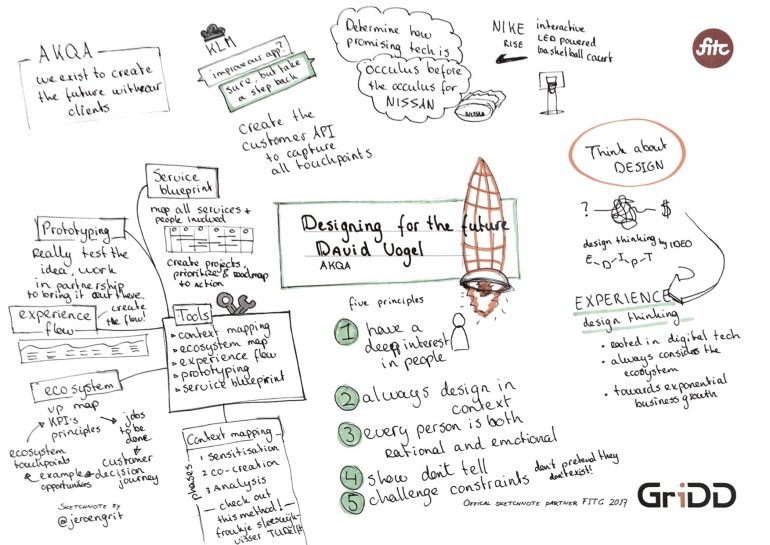 AKQA
we exist to create
the future with our
clients
KLM
improve our app?
sure, but take
a step back
Create the
customer API
to capture
all touchpoints
Determine how
promising tech is
OCCULUS before
the occulus for
NISSAN
NISSAN
NIKE
RISE
interactive
LED powered
basketball court
fitc
Think about
DESIGN
? $
design thinking by IDEO
E D I P T
EXPERIENCE
design thinking
• rooted in digital tech
• always considers the
ecosystem
• towards exponential
business growth
Designing for the future
David Vogel
AKQA
five principles
1 have a
deep interest
in people
2 always design in
context
3 every person is both
rational and emotional
4 show don't tell
5 challenge constraints
don't pretend they
don't exist!
Service
blueprint
map all services +
people involved
create projects,
prioritize & roadmap
to action
Prototyping
Really test the
idea, work
in partnership
to bring it out there.
experience
flow
create
the flow!
Tools
context mapping
ecosystem map
experience flow
prototyping
service blueprint
ecosystem
vp map
KPI's
principles
jobs
to be
done
customer
decision
journey
example
opportunities
ecosystem
touchpoints
Context mapping
phases
1 sensitisation
2 co-creation
3 Analysis
check out
this method!
froukje sleeswijk-
visser TUDelft
SKETCHNOTE BY
@jeroengrit
OFFICAL SKETCHNOTE PARTNER FITC 2017
GriDD